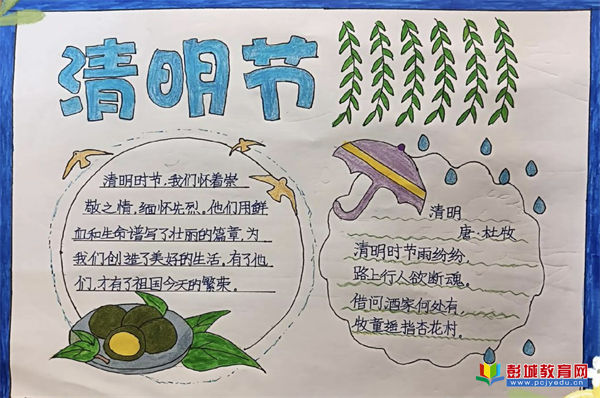 清明节
清明时节,我们怀着崇
敬之情,缅怀先烈。他们用鲜
血和生命谱写了壮丽的篇章,为
我们创造了美好的生活,有了他
们,才有了祖国今天的繁荣。
清明
唐·杜牧
清明时节雨纷纷,
路上行人欲断魂。
借问酒家何处有,
牧童遥指杏花村。
彭城教育网
www.pcjyedu.cn